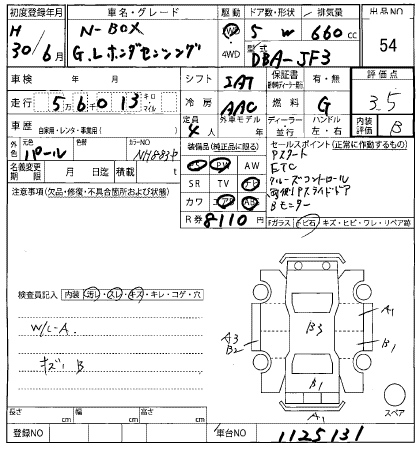 初度登録年月 車名・グレード 駆動 ドア数・形状 排気量 出品NO
H 30/6月 N-BOX 2WD 5 W 660cc 54
G.Lホンダセンシング 4WD 型式 DBA-JF3
車検 年 月 シフト IAT 保証書 有・無 評価点
走行 5 6 0 1 3 キロ マイル 冷房 AAC 燃料 G 3.5
車歴 自家用・レンタ・事業用( ) 定員 4人 外車モデル 年 ディーラー 並行 ハンドル 左・右 内装評価 B
外色 元色 パール 色替 カラーNO NH883P 装備品(純正品に限る) セールスポイント(正常に作動するもの)
名義変更期限 月 日迄 積載 t PS PW AW Pスタート
SR TV ナビ ETC
クルーズコントロール
カワ エアB ABS 両側Pスライドドア
R券 8110円 Bモニター
注意事項(欠品・修復・不具合箇所および状態) Fガラス トビ石・キズ・ヒビ・ワレ・リペア跡
検査員記入 内装 汚レ・スレ・キズ・キレ・コゲ・穴
W/L-A
キズ B
A3
B2
B3
A1
B1
B1
A1
スペア
長さ cm 幅 cm 高さ cm
登録NO 車台NO 1125131